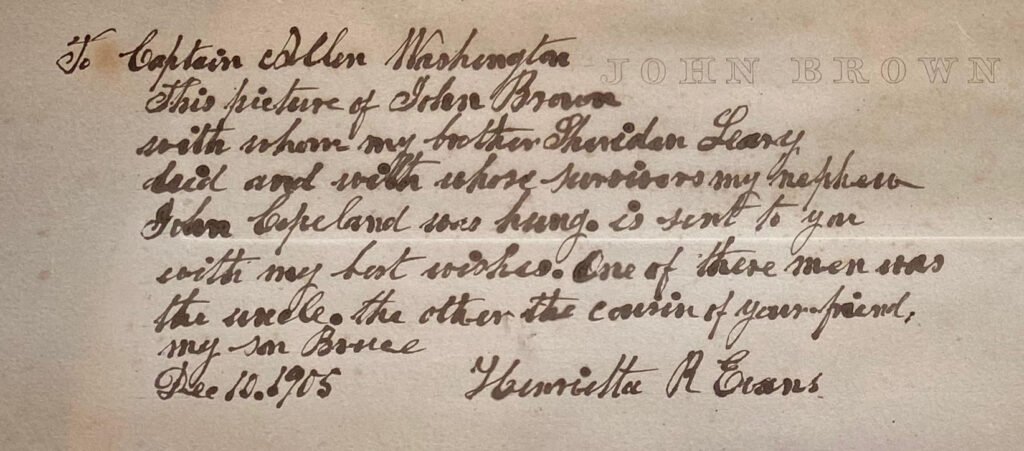 To Captain Allen Washington
JOHN BROWN
This picture of John Brown
with whom my brother Sheridan Leary
deid and with whose survivors my nephew
John Copeland was hung. is sent to you
with my best wishes. One of these men was
the uncle. the other the cousin of your friend,
my son Bruce
Dec 10. 1905 Henrietta R Evans